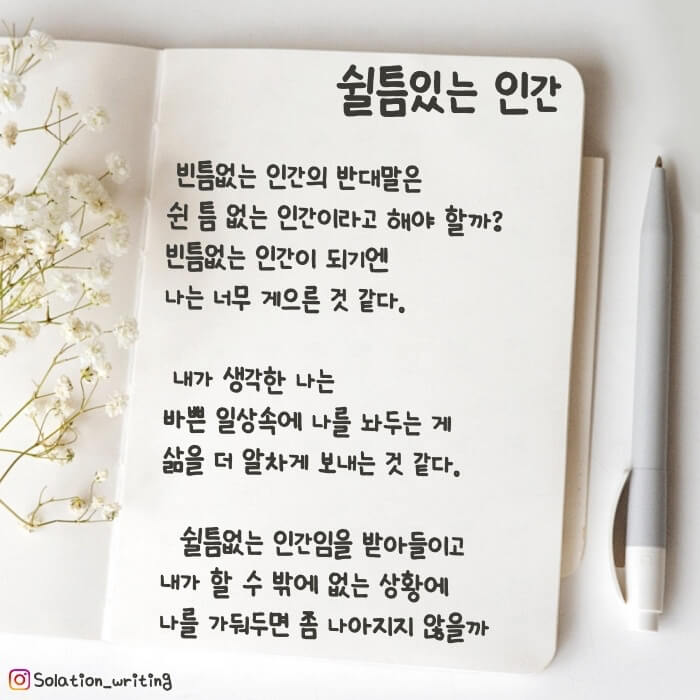 쉴틈있는 인간
빈틈없는 인간의 반대말은
쉰 틈 없는 인간이라고 해야 할까?
빈틈없는 인간이 되기엔
나는 너무 게으른 것 같다.
내가 생각한 나는
바쁜 일상속에 나를 놔두는 게
삶을 더 알차게 보내는 것 같다.
쉴틈없는 인간임을 받아들이고
내가 할 수 밖에 없는 상황에
나를 가둬두면 좀 나아지지 않을까
@Solation_writing